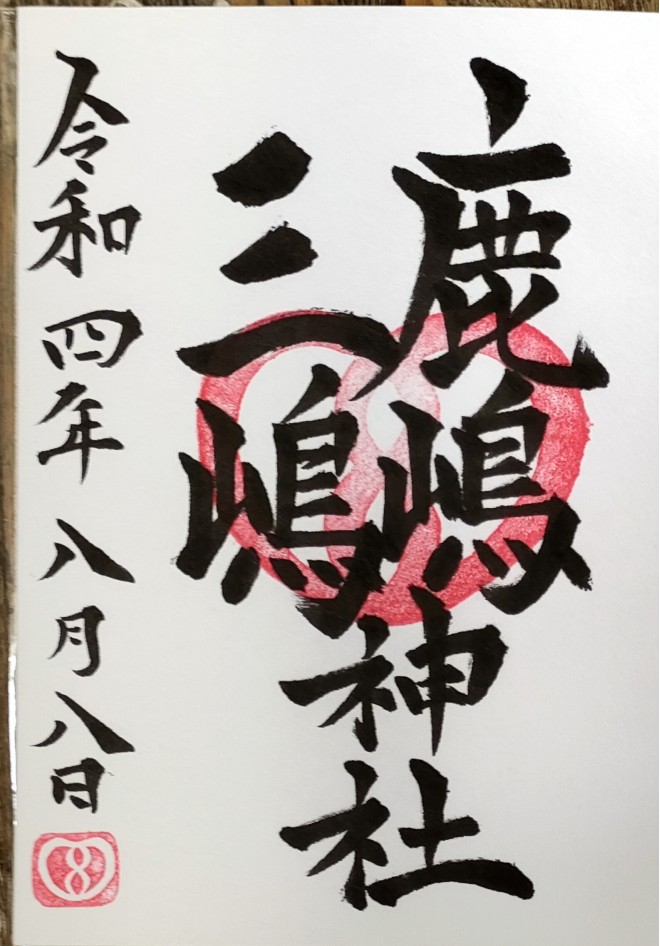 鹿嶋
三嶋
神社
令和四年八月八日